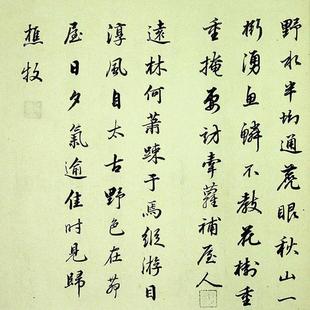 野水半場通麂眼秋山一
樹湧魚鱗不教花樹重
重掩要訪牽蘿補屋人
遠林何蕭踈于焉縱游目
淳風自太古野色在茆
屋日夕氣逾佳时見歸
樵牧